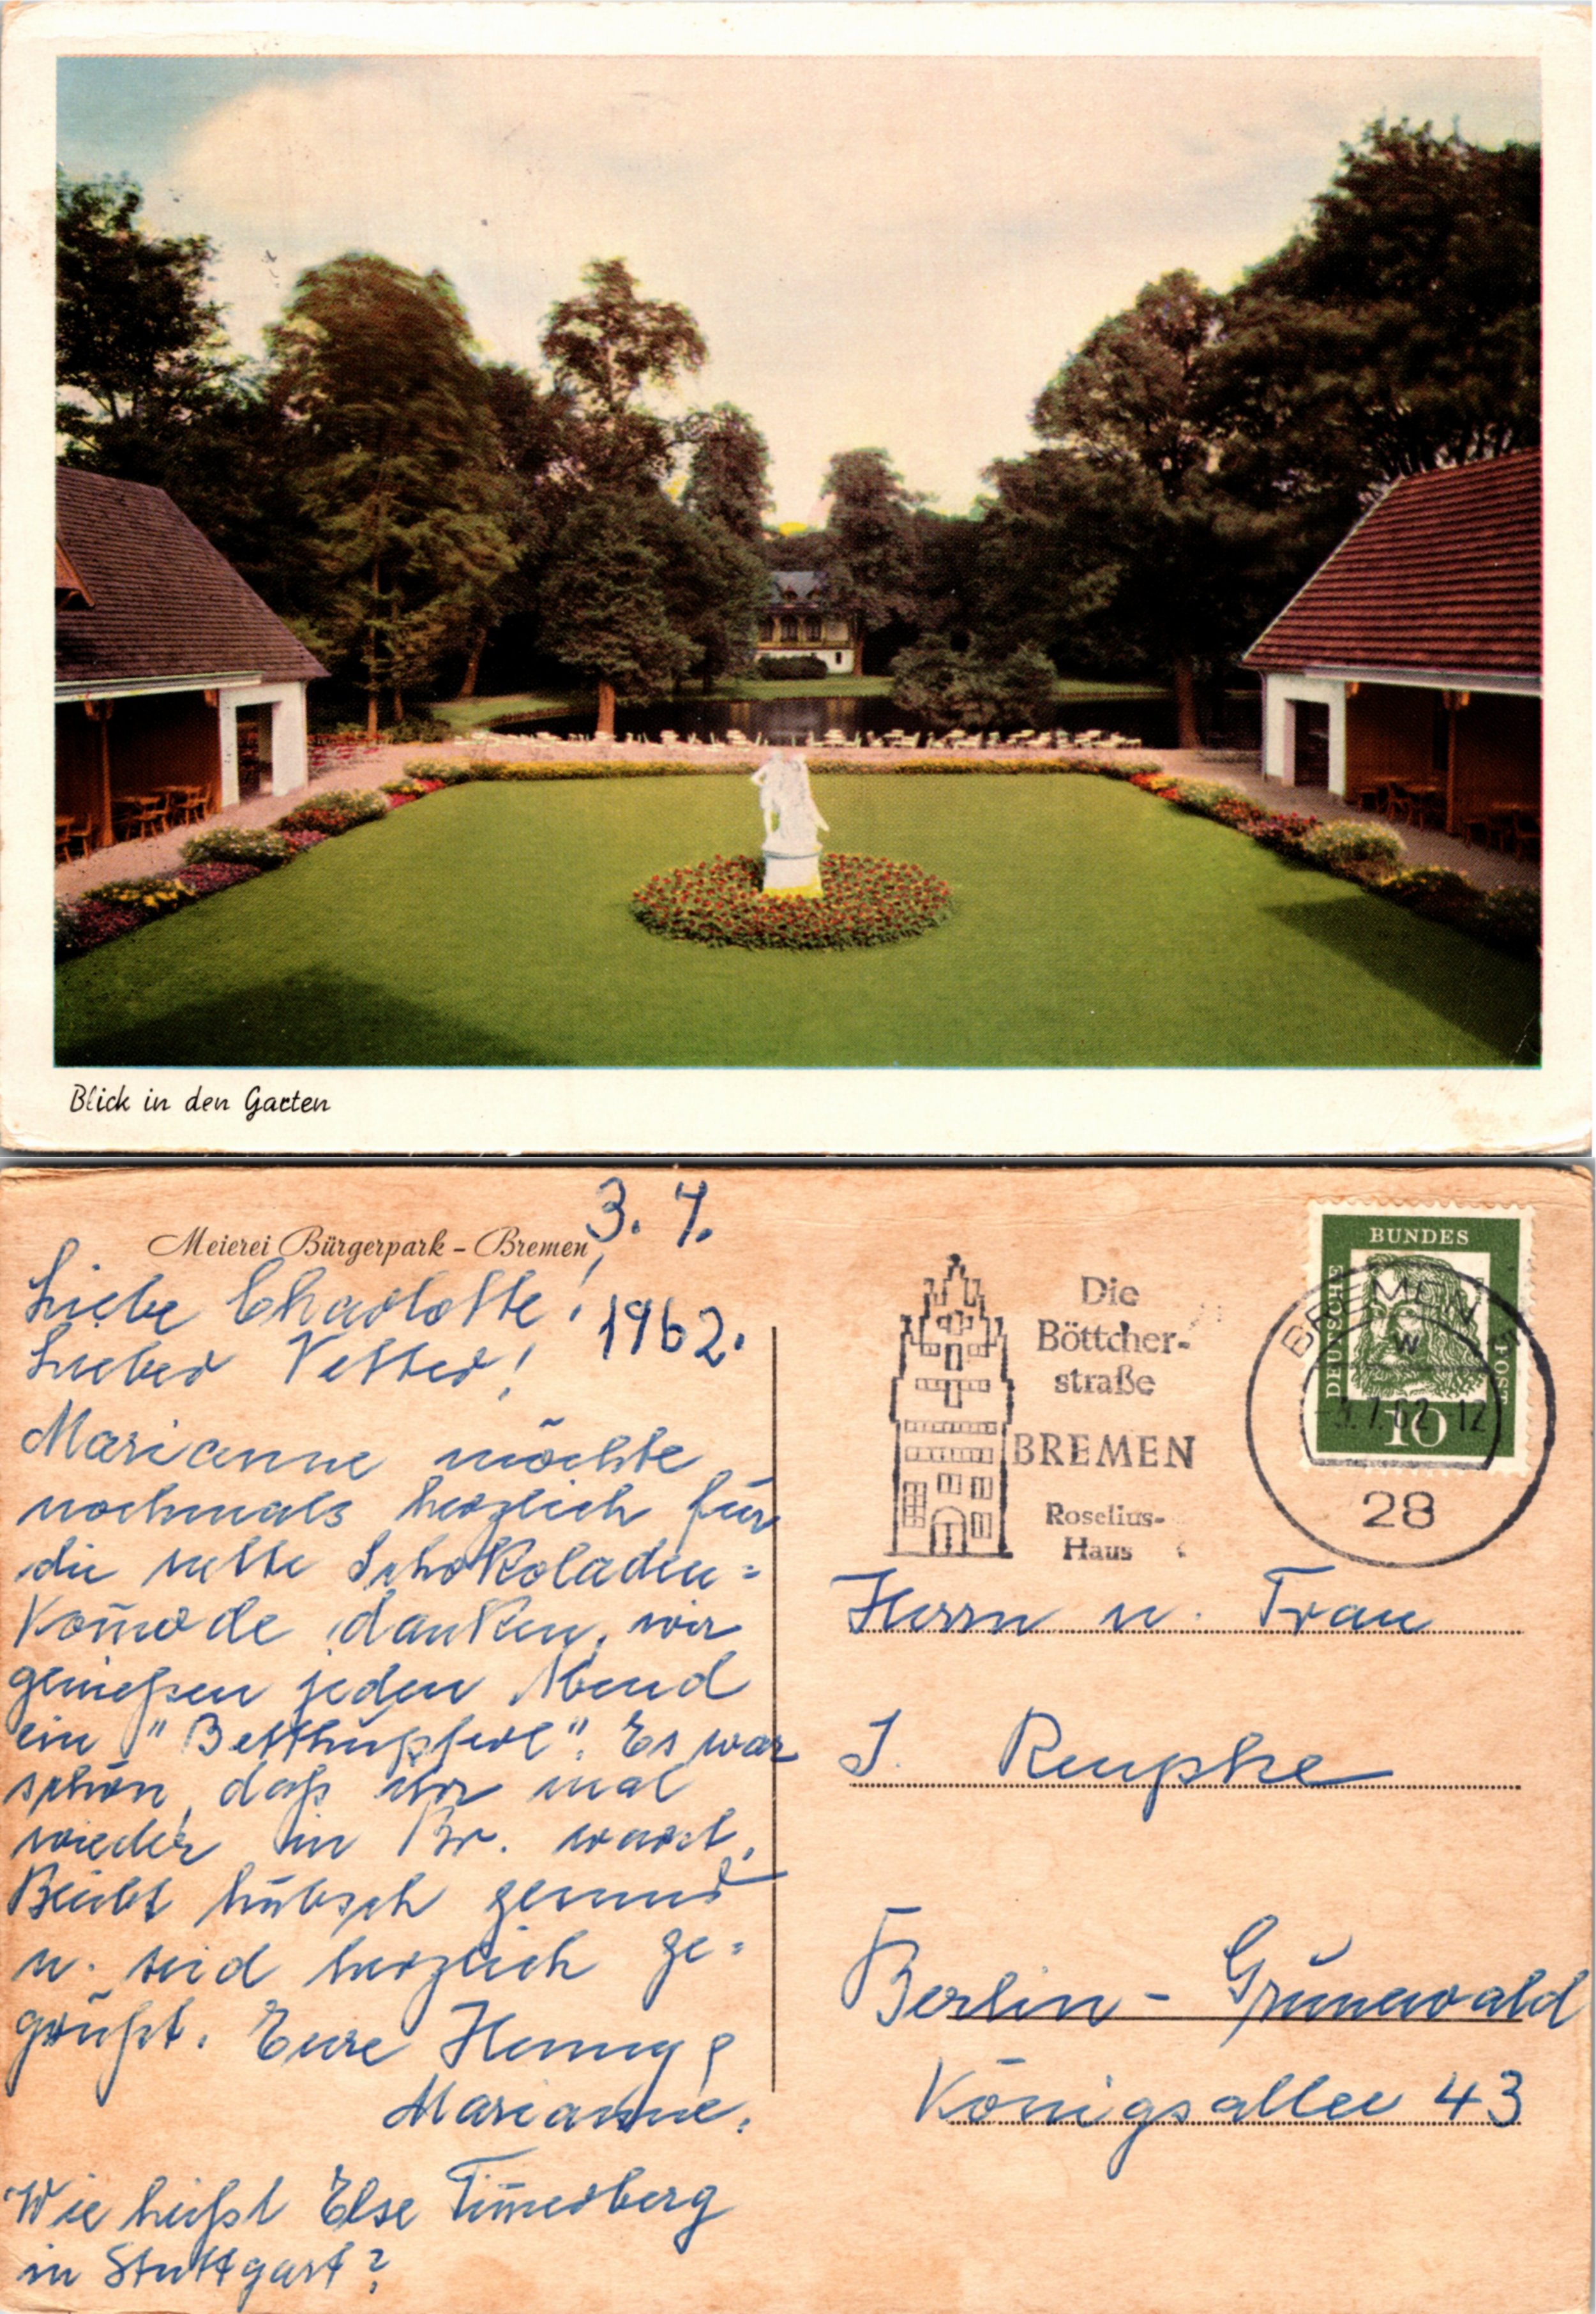 Blick in den Garten
Meierei Bürgerpark - Bremen
3. 7.
1962.
Liebe Charlotte!
Lieber Vetter!
Marianne möchte
nochmals herzlich für
die nette Schokoladen=
Kom̄ode danken, wir
genießen jeden Abend
ein "Betthupferl". Es war
schön, daß ihr mal
wieder in Br. wart.
Bleibt hübsch gesund
u. seid herzlich ge=
grüßt. Eure Henny &
Marianne.
Wie heißt Else Tim̄erberg
in Stuttgart?
Die
Böttcher-
straße
BREMEN
Roselius-
Haus
BUNDES
DEUTSCHE
POST
10
BREMEN
w
-3.7.62-12
28
Herrn u. Frau
J. Reupke
Berlin - Grunewald
Königsallee 43